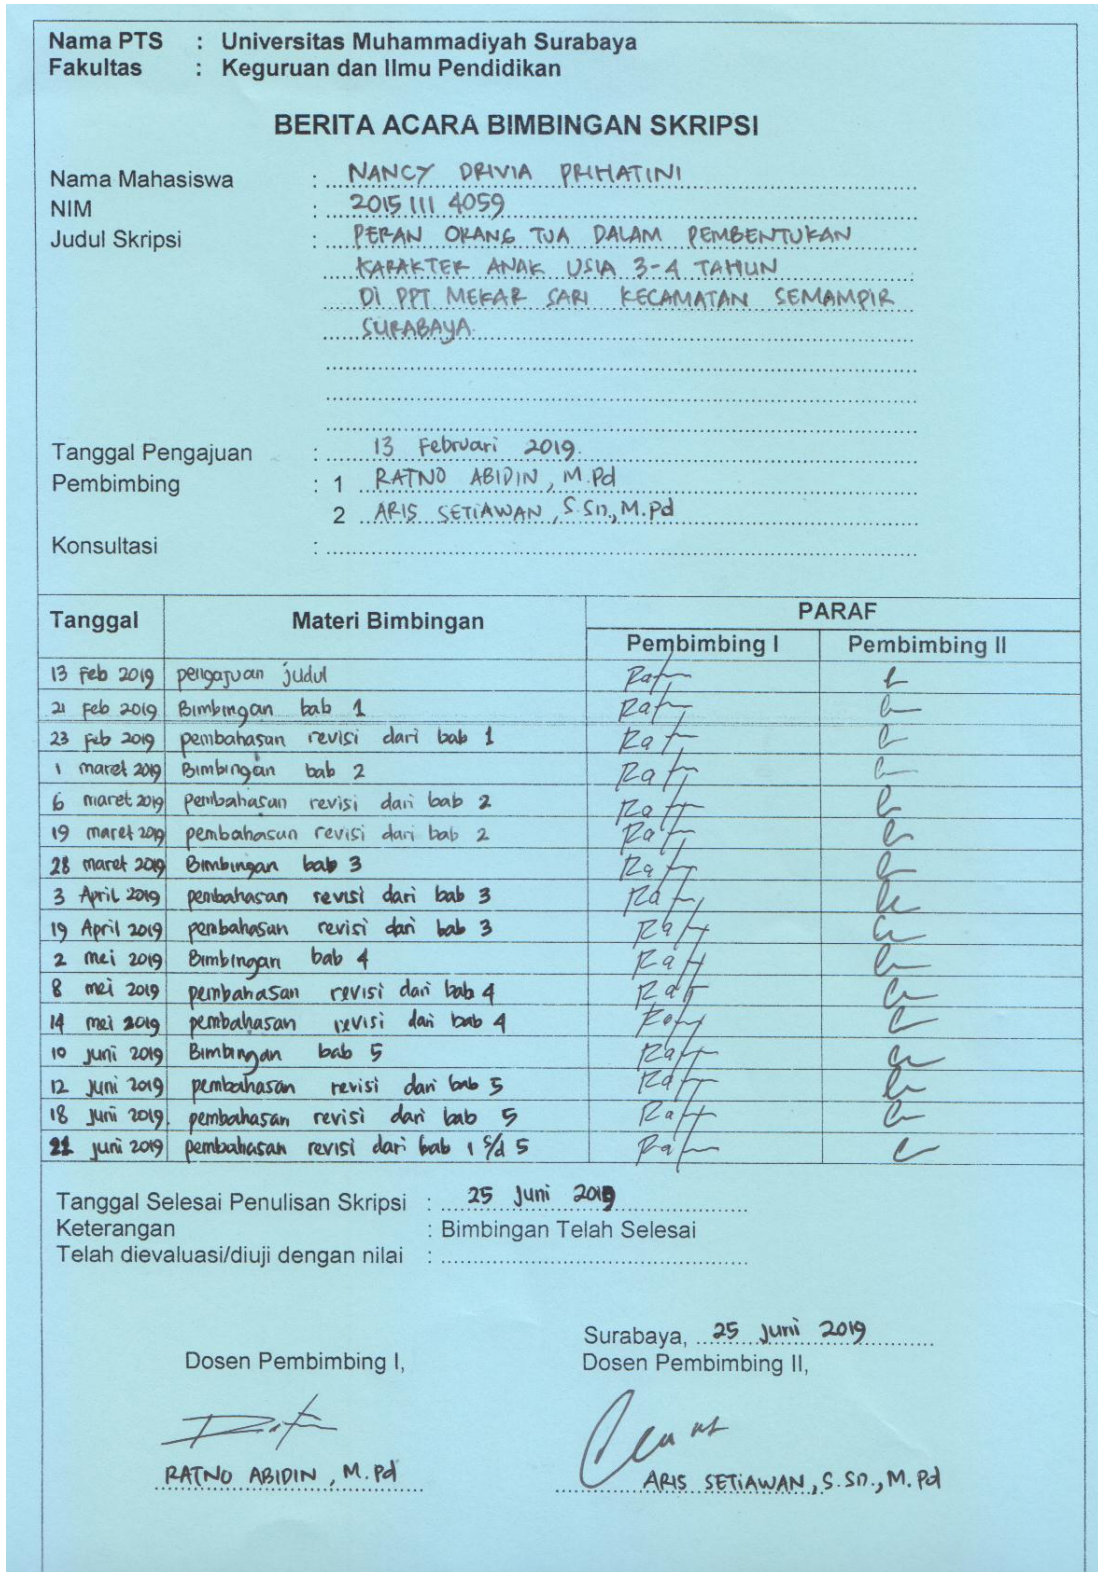 Nama PTS : Universitas Muhammadiyah Surabaya
Fakultas : Keguruan dan Ilmu Pendidikan
BERITA ACARA BIMBINGAN SKRIPSI
Nama Mahasiswa : NANCY DRIVIA PRIHATINI
NIM : 2015 111 4059
Judul Skripsi : PERAN ORANG TUA DALAM PEMBENTUKAN
KARAKTER ANAK USIA 3-4 TAHUN
DI PPT MEKAR SARI KECAMATAN SEMAMPIR
SURABAYA.
Tanggal Pengajuan : 13 Februari 2019.
Pembimbing : 1 RATNO ABIDIN, M.Pd
2 ARIS SETIAWAN, S.Sn., M.Pd
Konsultasi :
Tanggal Materi Bimbingan PARAF
Pembimbing I Pembimbing II
13 Feb 2019 pengajuan judul
21 Feb 2019 Bimbingan bab 1
23 Feb 2019 pembahasan revisi dari bab 1
1 maret 2019 Bimbingan bab 2
6 maret 2019 pembahasan revisi dari bab 2
19 maret 2019 pembahasan revisi dari bab 2
28 maret 2019 Bimbingan bab 3
3 April 2019 pembahasan revisi dari bab 3
19 April 2019 pembahasan revisi dari bab 3
2 mei 2019 Bimbingan bab 4
8 mei 2019 pembahasan revisi dari bab 4
14 mei 2019 pembahasan revisi dari bab 4
10 juni 2019 Bimbingan bab 5
12 juni 2019 pembahasan revisi dari bab 5
18 juni 2019. pembahasan revisi dari bab 5
juni 2019 pembahasan revisi dari bab 1 s/d 5
Tanggal Selesai Penulisan Skripsi : 25 Juni 2019
Keterangan : Bimbingan Telah Selesai
Telah dievaluasi/diuji dengan nilai :
Surabaya, 25 Juni 2019
Dosen Pembimbing I, Dosen Pembimbing II,
RATNO ABIDIN, M.Pd ARIS SETIAWAN, S.Sn., M.Pd